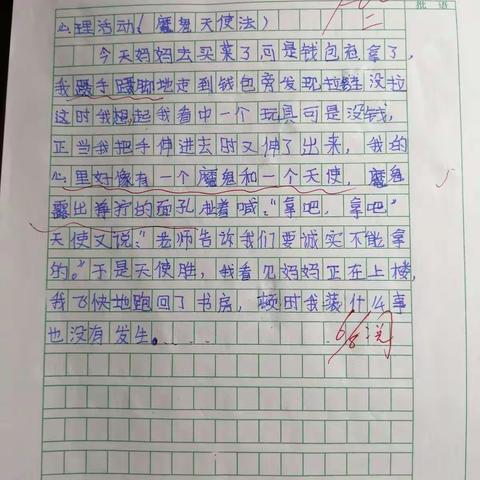 批语
二
心理活动(魔鬼天使法)
今天妈妈去买菜了可是钱包忘拿了,
我蹑手蹑脚地走到钱包旁发现拉链没拉
这时我想起我看中一个玩具可是没钱,
正当我把手伸进去时又伸了出来,我的
心里好像有一个魔鬼和一个天使,魔鬼
露出狰狞的面孔 喊:“拿吧,拿吧”
天使又说:“老师告诉我们要诚实不能拿
的。”于是天使胜,我看见妈妈正在上楼,
我飞快地跑回了书房,顿时我装什么事
也没有发生。
6/8